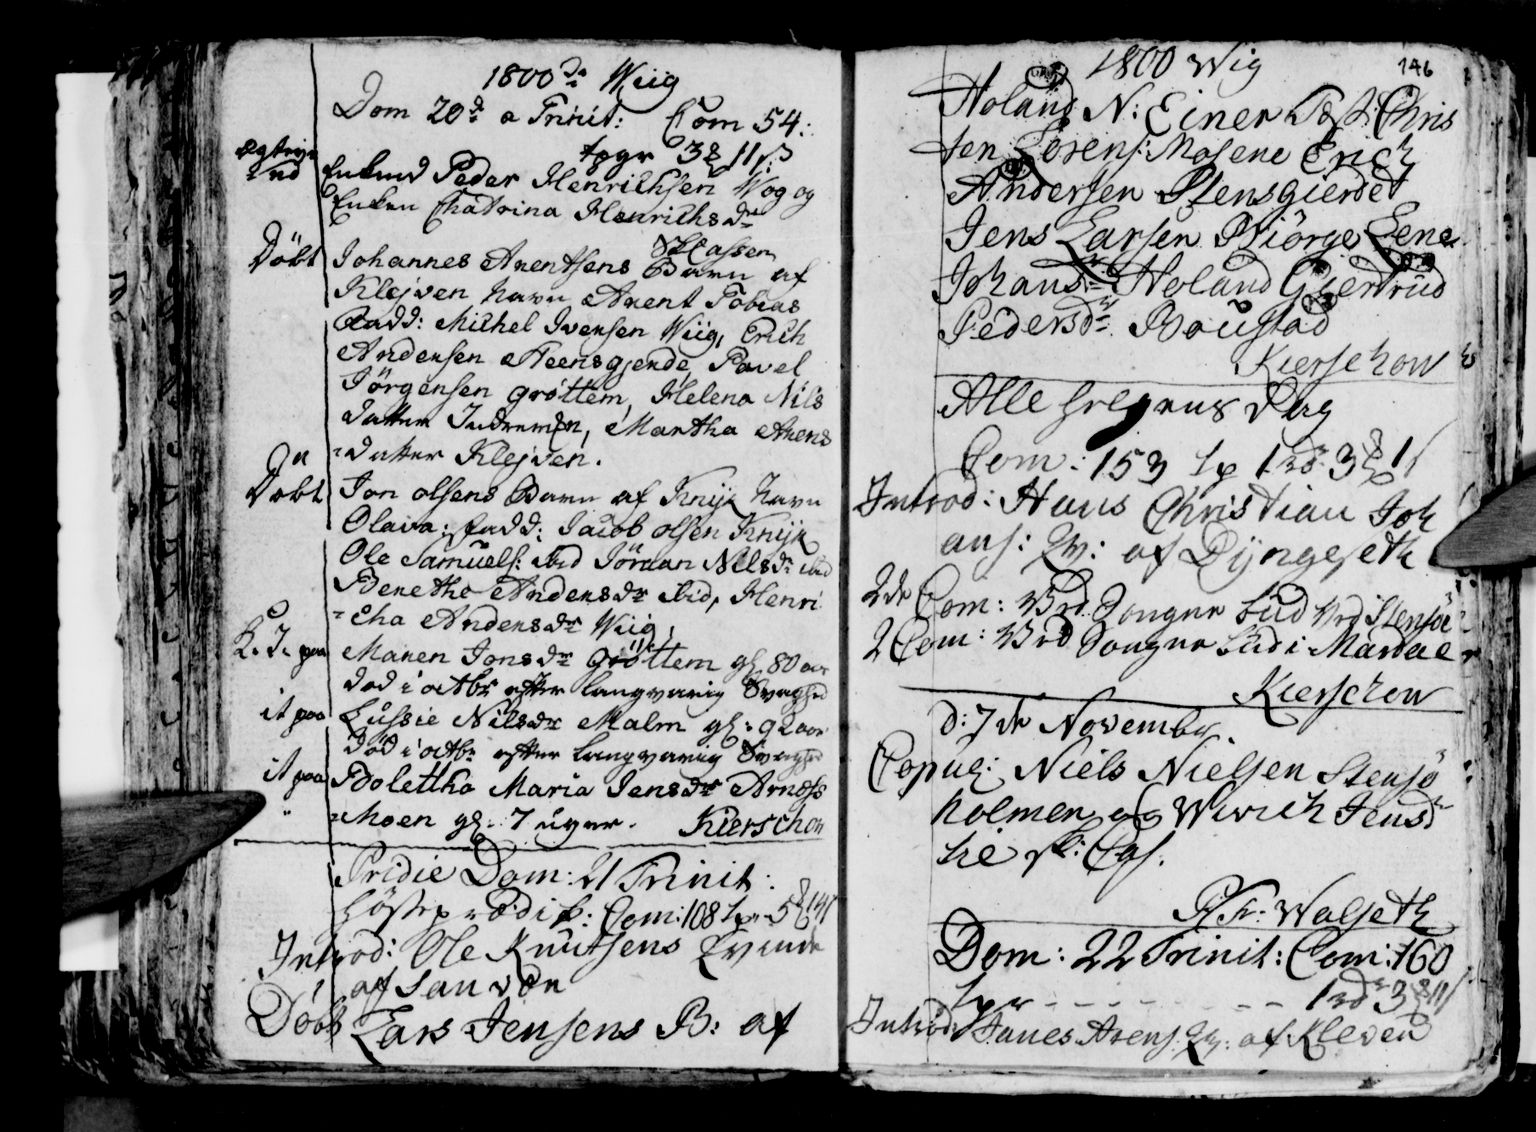 1800 Wiig
Dom 20 a Trinit: Com 54:
3 11
Peder Henrichsen Wog og
Enken Chatrina Henrichsdr
Klassen
Døbt Johannes Arentsens Barn af
Klejven Navn Arent Tobias
Fadd: Michel Ivensen Wiig, Erich
Andersen Steensgjerde, Pavel
Jörgensen Grøttem, Helena Nils
datter Indremoen, Martha Arens
=datter Klejven.
Døbt Jon Olsens Barn af Knijk Navn
Olava: Fadd: Jacob Olsen Knijk
Ole Samuels: ibid Jöraan Nilsdr ibid
Benetha Andersdr ibid, Henri
=cha Andersdr Wiig,
Maren Jonsdr Grøttem gl. 80 aar
død i octbr efter langvarig Svaghed
it paa Lussie Nilsdr Malm gl: 92 aar
død i octbr efter langvarig Svaghed
it paa Bolettha Maria Jensdr Arnes
=moen gl. 7 uger. Kierschow
Pridie Dom: 21 Trinit:
Com: 108
Introd: Ole Knutsens Kvinde
af Sandøen
Døbt Lars Jensens B: af
146
1800 Wig
Holand N: Einer Test: Chris
ten Sörens: Mosene Erich
Andersen Stensgierdet
Jens Larsen Biörge Lene
Johansdr Holand Giertrud
Pedersdr Boustad
Kierschow
Alle Helgens Dag
Com: 153 1 rd 3 1
Introd: Hans Christian Joh
ans: Qv: af Dyngeseth
2de Com: Stensöe
2 Com: i Mardal
Kierschow
d: 7de Novembr.
Copul: Niels Nielsen Stensö
holmen og Wivich Jensdr
Walseth
Dom: 22 Trinit: Com: 160
1 rd 3 11
Introd: Arens. Qv. af Kleven